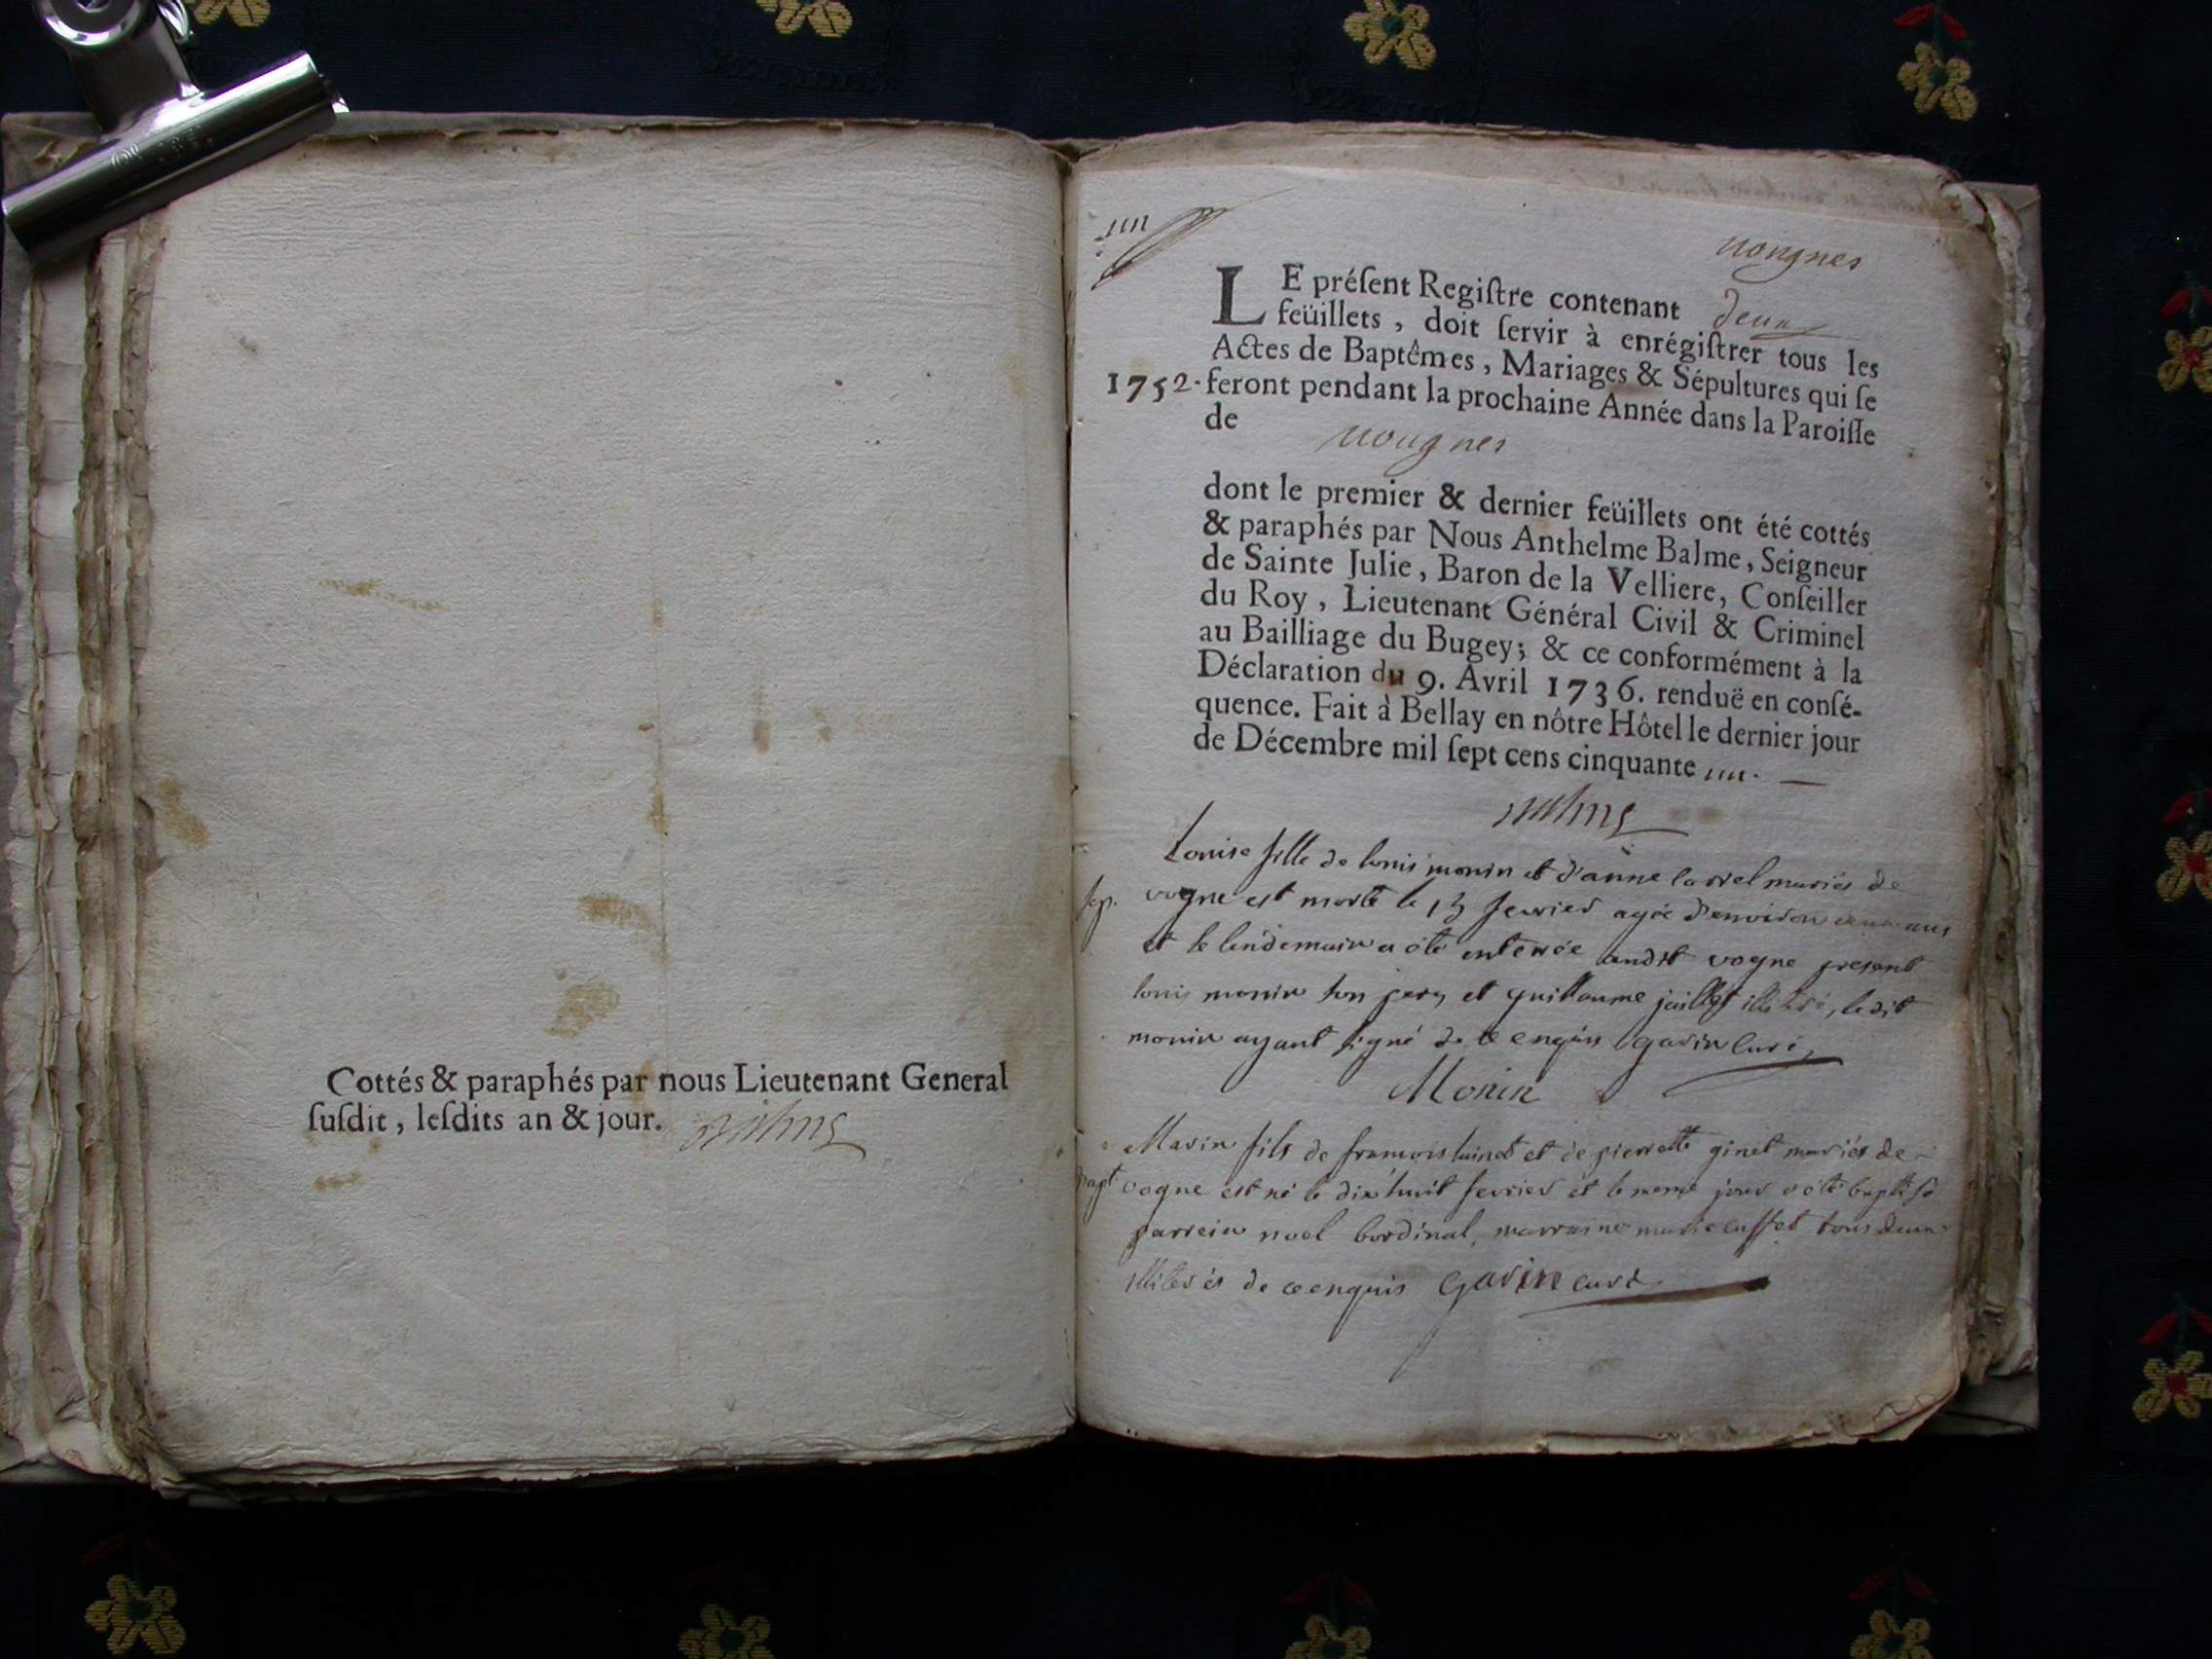 Cottés & paraphés par nous Lieutenant General
ſuſdit, leſdits an & jour.
un
vongnes
LE préſent Regiſtre contenant deux
feüillets, doit ſervir à enrégiſtrer tous les
Actes de Baptêmes, Mariages & Sépultures qui ſe
1752. feront pendant la prochaine Année dans la Paroiſſe
de vougnes
dont le premier & dernier feüillets ont été cottés
& paraphés par Nous Anthelme Balme, Seigneur
de Sainte Julie, Baron de la Velliere, Conſeiller
du Roy, Lieutenant Général Civil & Criminel
au Bailliage du Bugey; & ce conformément à la
Déclaration du 9. Avril 1736. renduë en conſé-
quence. Fait à Bellay en nôtre Hôtel le dernier jour
de Décembre mil ſept cens cinquante un.
Balme
Louise fille de louis monin et d'anne mariés de
Sep. vogne est morte le 13 fevrier agée d'environ ans
et le lendemain a été enterrée audit vogne present
louis monin son pere et guillaume juillet illiteré, ledit
monin ayant signé de ce enquis gavin curé
Monin
Marin fils de francois et de pierrette ginet mariés de
bapt vogne est né le dix huit fevrier et le meme jour a été baptisé
parrein noel bordinal, marraine marie tous deux
illiterés de ce enquis gavin curé